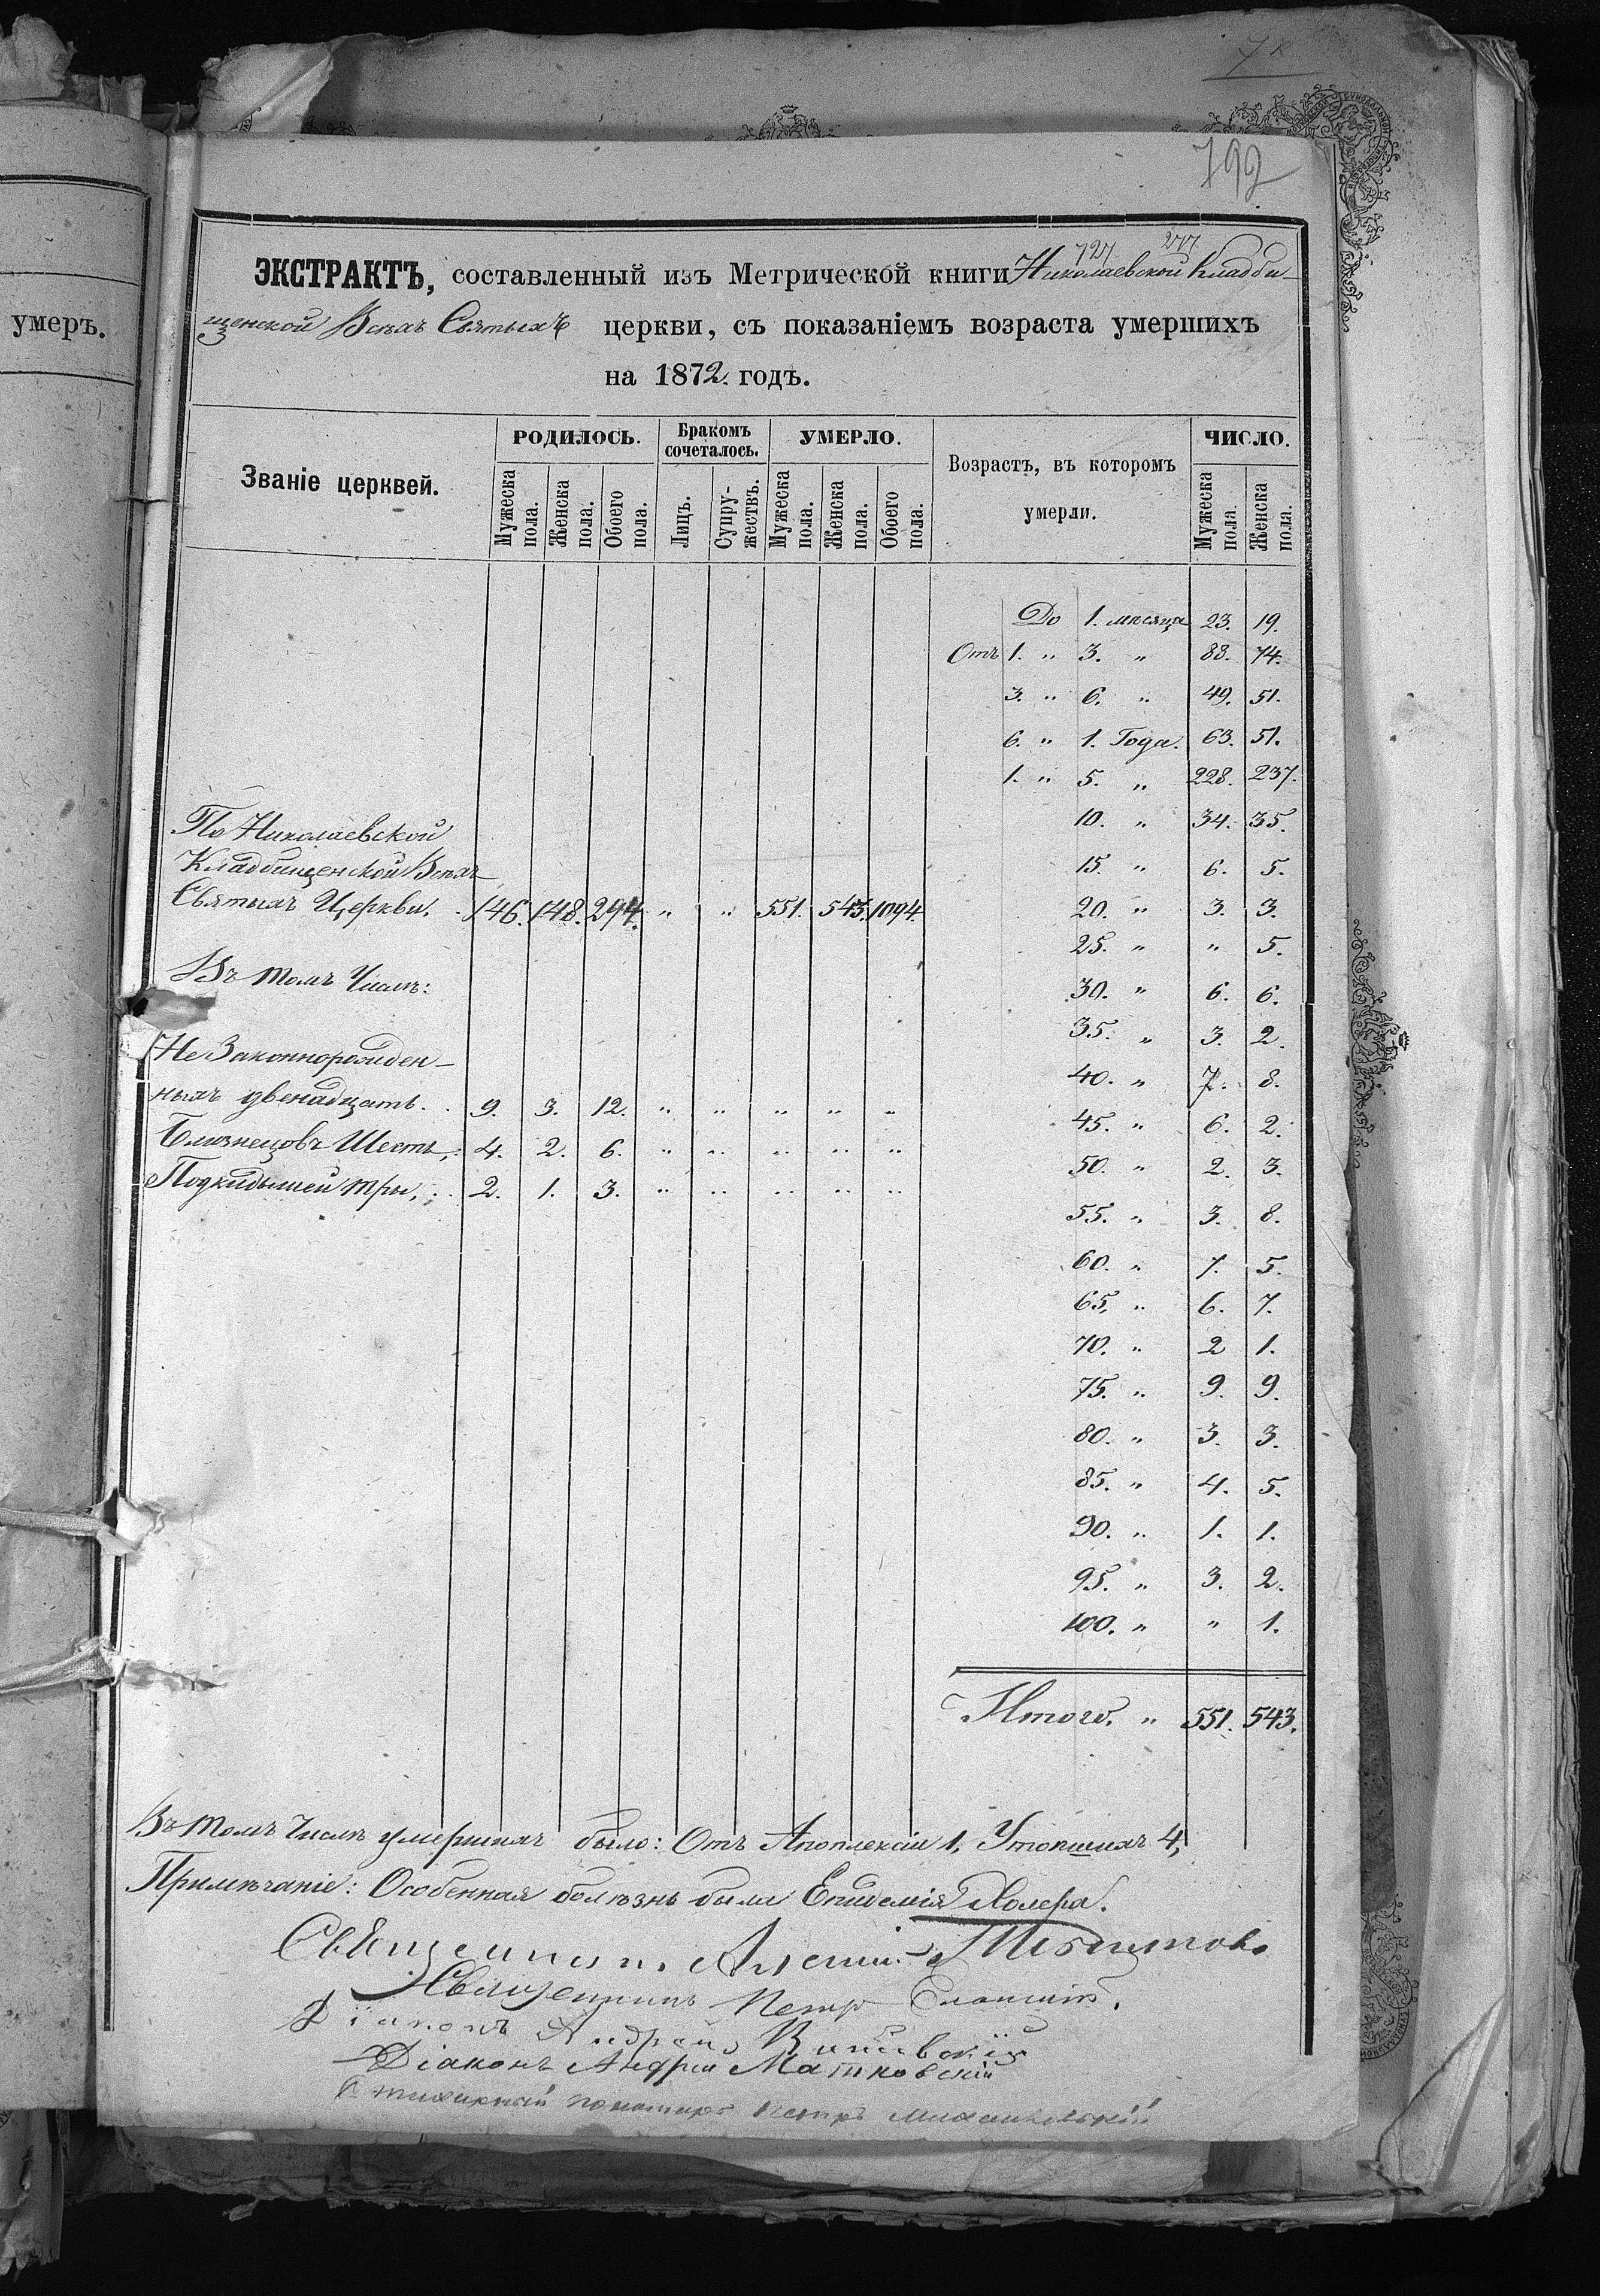 7к
792
727 277
умеръ.
ЭКСТРАКТЪ, составленный изъ Метрической книги Николаевской Кладби-
щенской Всѣхъ Святыхъ церкви, съ показаніемъ возраста умершихъ
на 1872. годъ.
Званіе церквей. РОДИЛОСЬ. Бракомъ сочеталось. УМЕРЛО. Возрастъ, въ которомъ умерли. ЧИСЛО.
Мужеска пола. Женска пола. Обоего пола. Лицъ. Супружествъ. Мужеска пола. Женска пола. Обоего пола. Мужеска пола. Женска пола.
До 1. мѣсяца 23. 19.
Отъ 1. „ 3. „ 88. 74.
3. „ 6. „ 49. 51.
6. „ 1. Года. 63. 51.
1. „ 5. „ 228. 237.
10. „ 34. 35.
15. „ 6. 5.
20. „ 3. 3.
25. „ „ 5.
30. „ 6. 6.
35. „ 3. 2.
40. „ 7. 8.
45. „ 6. 2.
50. „ 2. 3.
55. „ 3. 8.
60. „ 7. 5.
65. „ 6. 7.
70. „ 2 1.
75. „ 9. 9.
80. „ 3. 3.
85. „ 4. 5.
90. „ 1. 1.
95. „ 3. 2.
100. „ „ 1.
Итого. „ 551. 543.
По Николаевской
Кладбищенской Всѣхъ
Святыхъ Церкви. 146. 148. 294. „ „ 551. 543. 1094
Въ томъ Числѣ:
Не Законнорожден-
ныхъ двенадцать. . 9. 3. 12. „ „ „ „ „
Близнецовъ Шесть, . 4. 2. 6. „ „ „ „ „
Подкидышей три, . . 2. 1. 3. „ „ „ „ „
Въ томъ Числѣ умершихъ было: Отъ Апоплексіи 1, Утопшихъ 4,
Примѣчаніе: Особенная болѣзнь была Епидемія Холера.
Священникъ
Священникъ Петръ
Діаконъ Андрей
Діаконъ Андрей Матковскій
пономарь Петръ